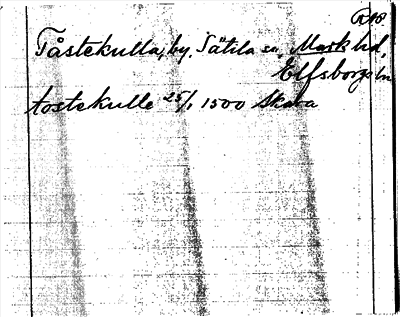 Tåstekulla, by, Sätila sn, Mark hd,
Elfsborgs ln
tostekulle 25/1 1500 Skara